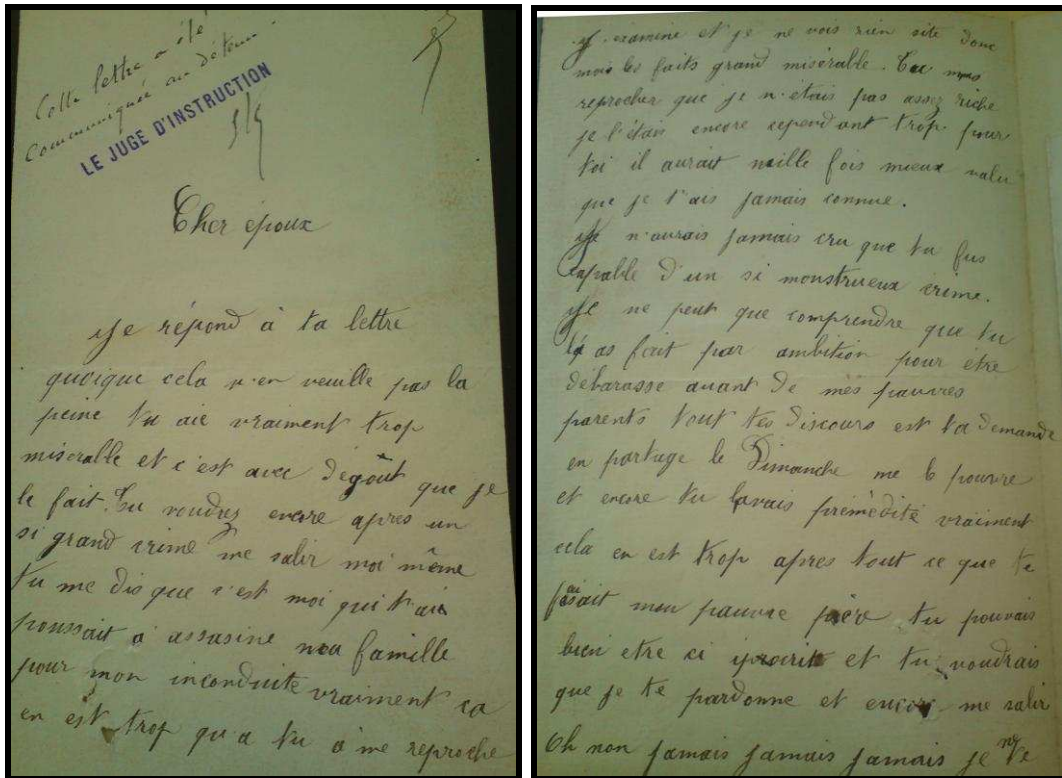 Cette lettre a été
communiquée au détenu
LE JUGE D'INSTRUCTION
Cher époux
Je répond à ta lettre
quoique cela n'en veuille pas la
peine tu aie vraiment trop
misérable et c'est avec dégoût que je
le fait. Tu voudrez encre apres un
si grand crime me salir moi même
tu me dis que c'est moi qui t'ai
poussait à assasine ma famille
pour mon inconduite vraiment ca
en est trop qu a tu a me reproche
J examine et je ne vois rien site donc
mois les faits grand misérable. Tu mas
reprocher que je n'étais pas assez riche
je l'étais encore cependant trop pour
toi il aurait mille fois mieux valu
que je t'ais jamais connue.
Je n'aurais jamais cru que tu fus
capable d'un si monstrueux crime.
Je ne peut que comprendre que tu
l'as fait par ambition pour etre
débarasse avant de mes pauvres
parents tout tes discours est ta demande
en partage le Dimanche me le
et encore tu lavais prémédité vraiment
cela en est trop apres tout ce que te
faisait mon pauvre père tu pouvais
bien etre ci et tu voudrais
que je te pardonne et encore me salir
Oh non jamais jamais jamais je ne te